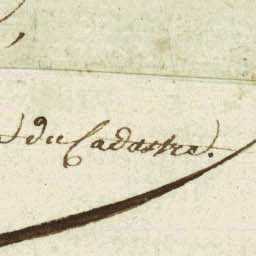 du Cadastre.